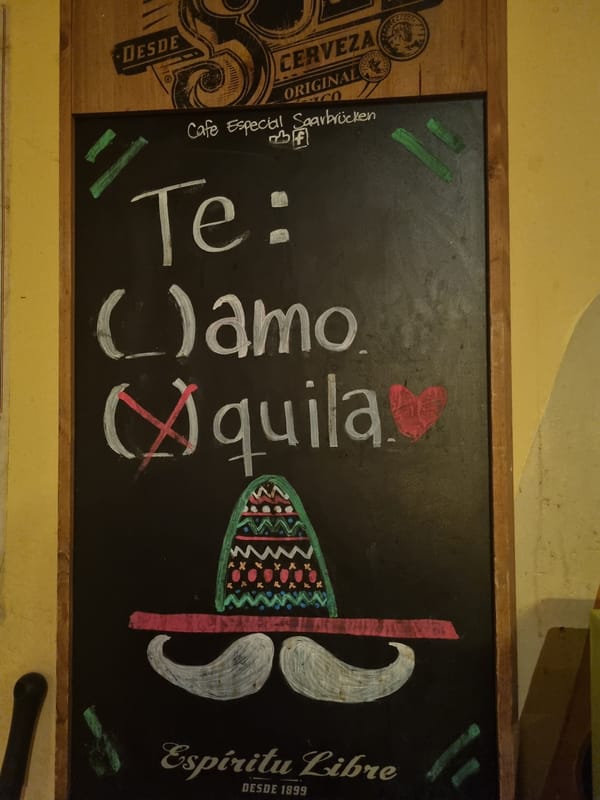 DESDE
SOL
CERVEZA
ORIGINAL
Cafe Especial Saarbrücken
f
Te:
(_)amo.
(X)quila.
Espíritu Libre
DESDE 1899